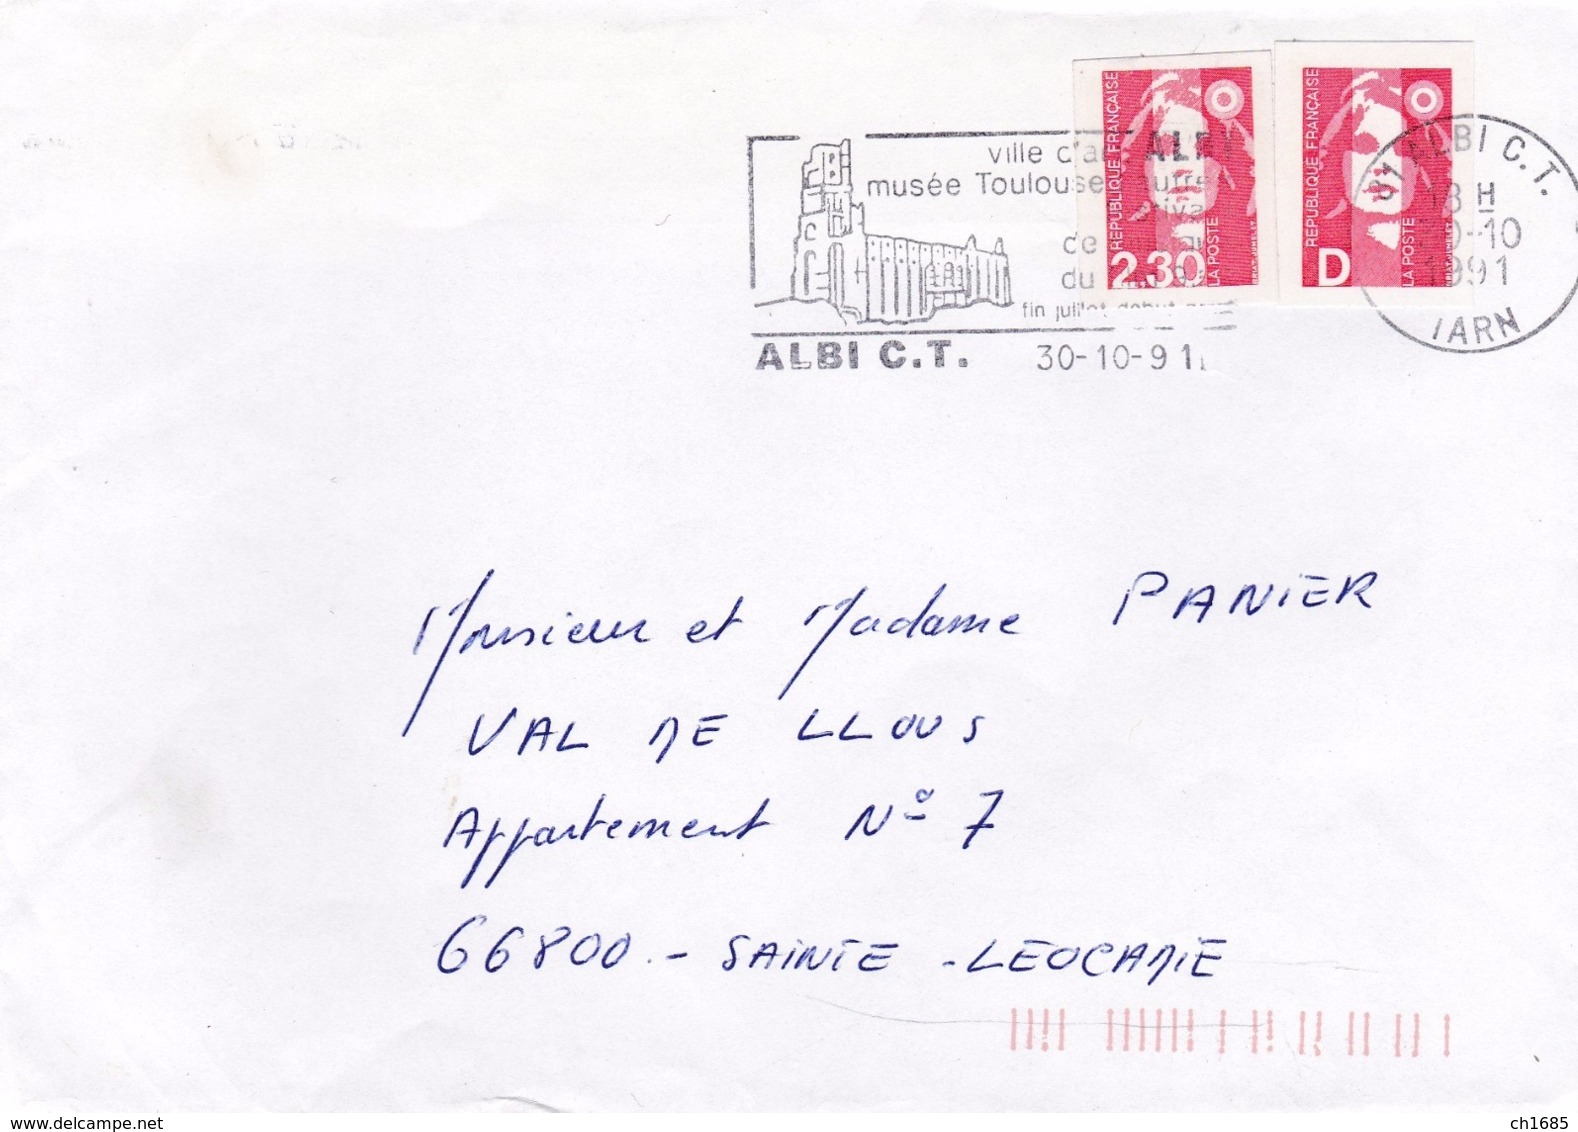 ville d'art ALBI
musée Toulouse Lautrec
de
du
fin juillet début
ALBI C.T. 30-10-91
RÉPUBLIQUE FRANÇAISE
2,30
LA POSTE
RÉPUBLIQUE FRANÇAISE
D
LA POSTE
81 ALBI C.T.
18 H
30-10
1991
TARN
Monsieur et Madame PANIER
VAL DE LLOUS
Appartement N° 7
66800.- SAINTE - LEOCADIE
www.delcampe.net
ch1685